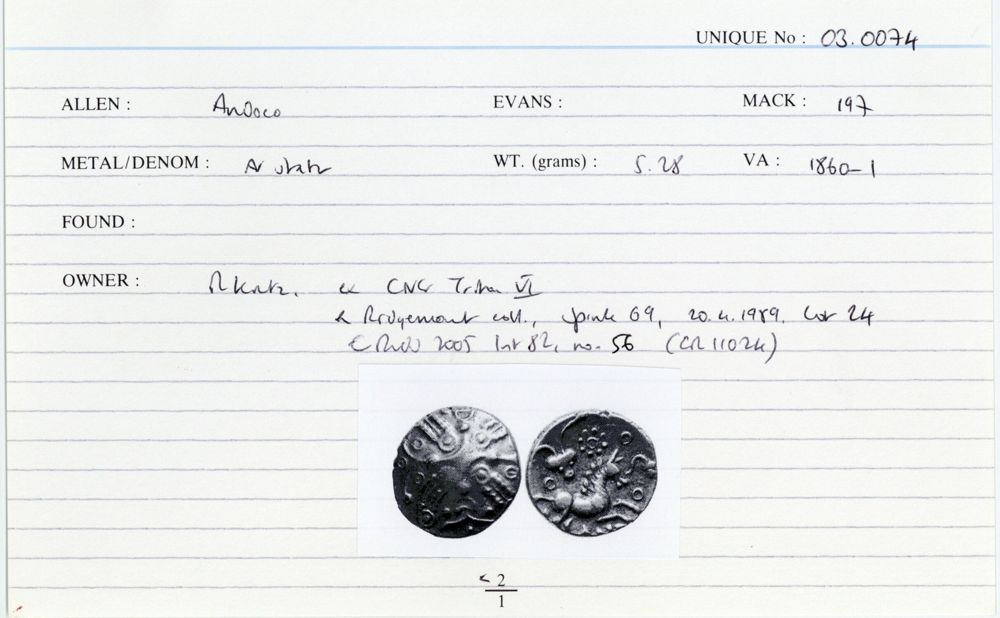 UNIQUE No : 03.0074
ALLEN : Andoco EVANS : MACK : 197
METAL/DENOM : Av stater WT. (grams) : 5.28 VA : 1860-1
FOUND :
OWNER : ex CNG Triton VI
Ridgemount coll., Spink 69, 20.4.1989, Lot 24
2005 list 82, no. 56 (CR 11024)
< 2
1